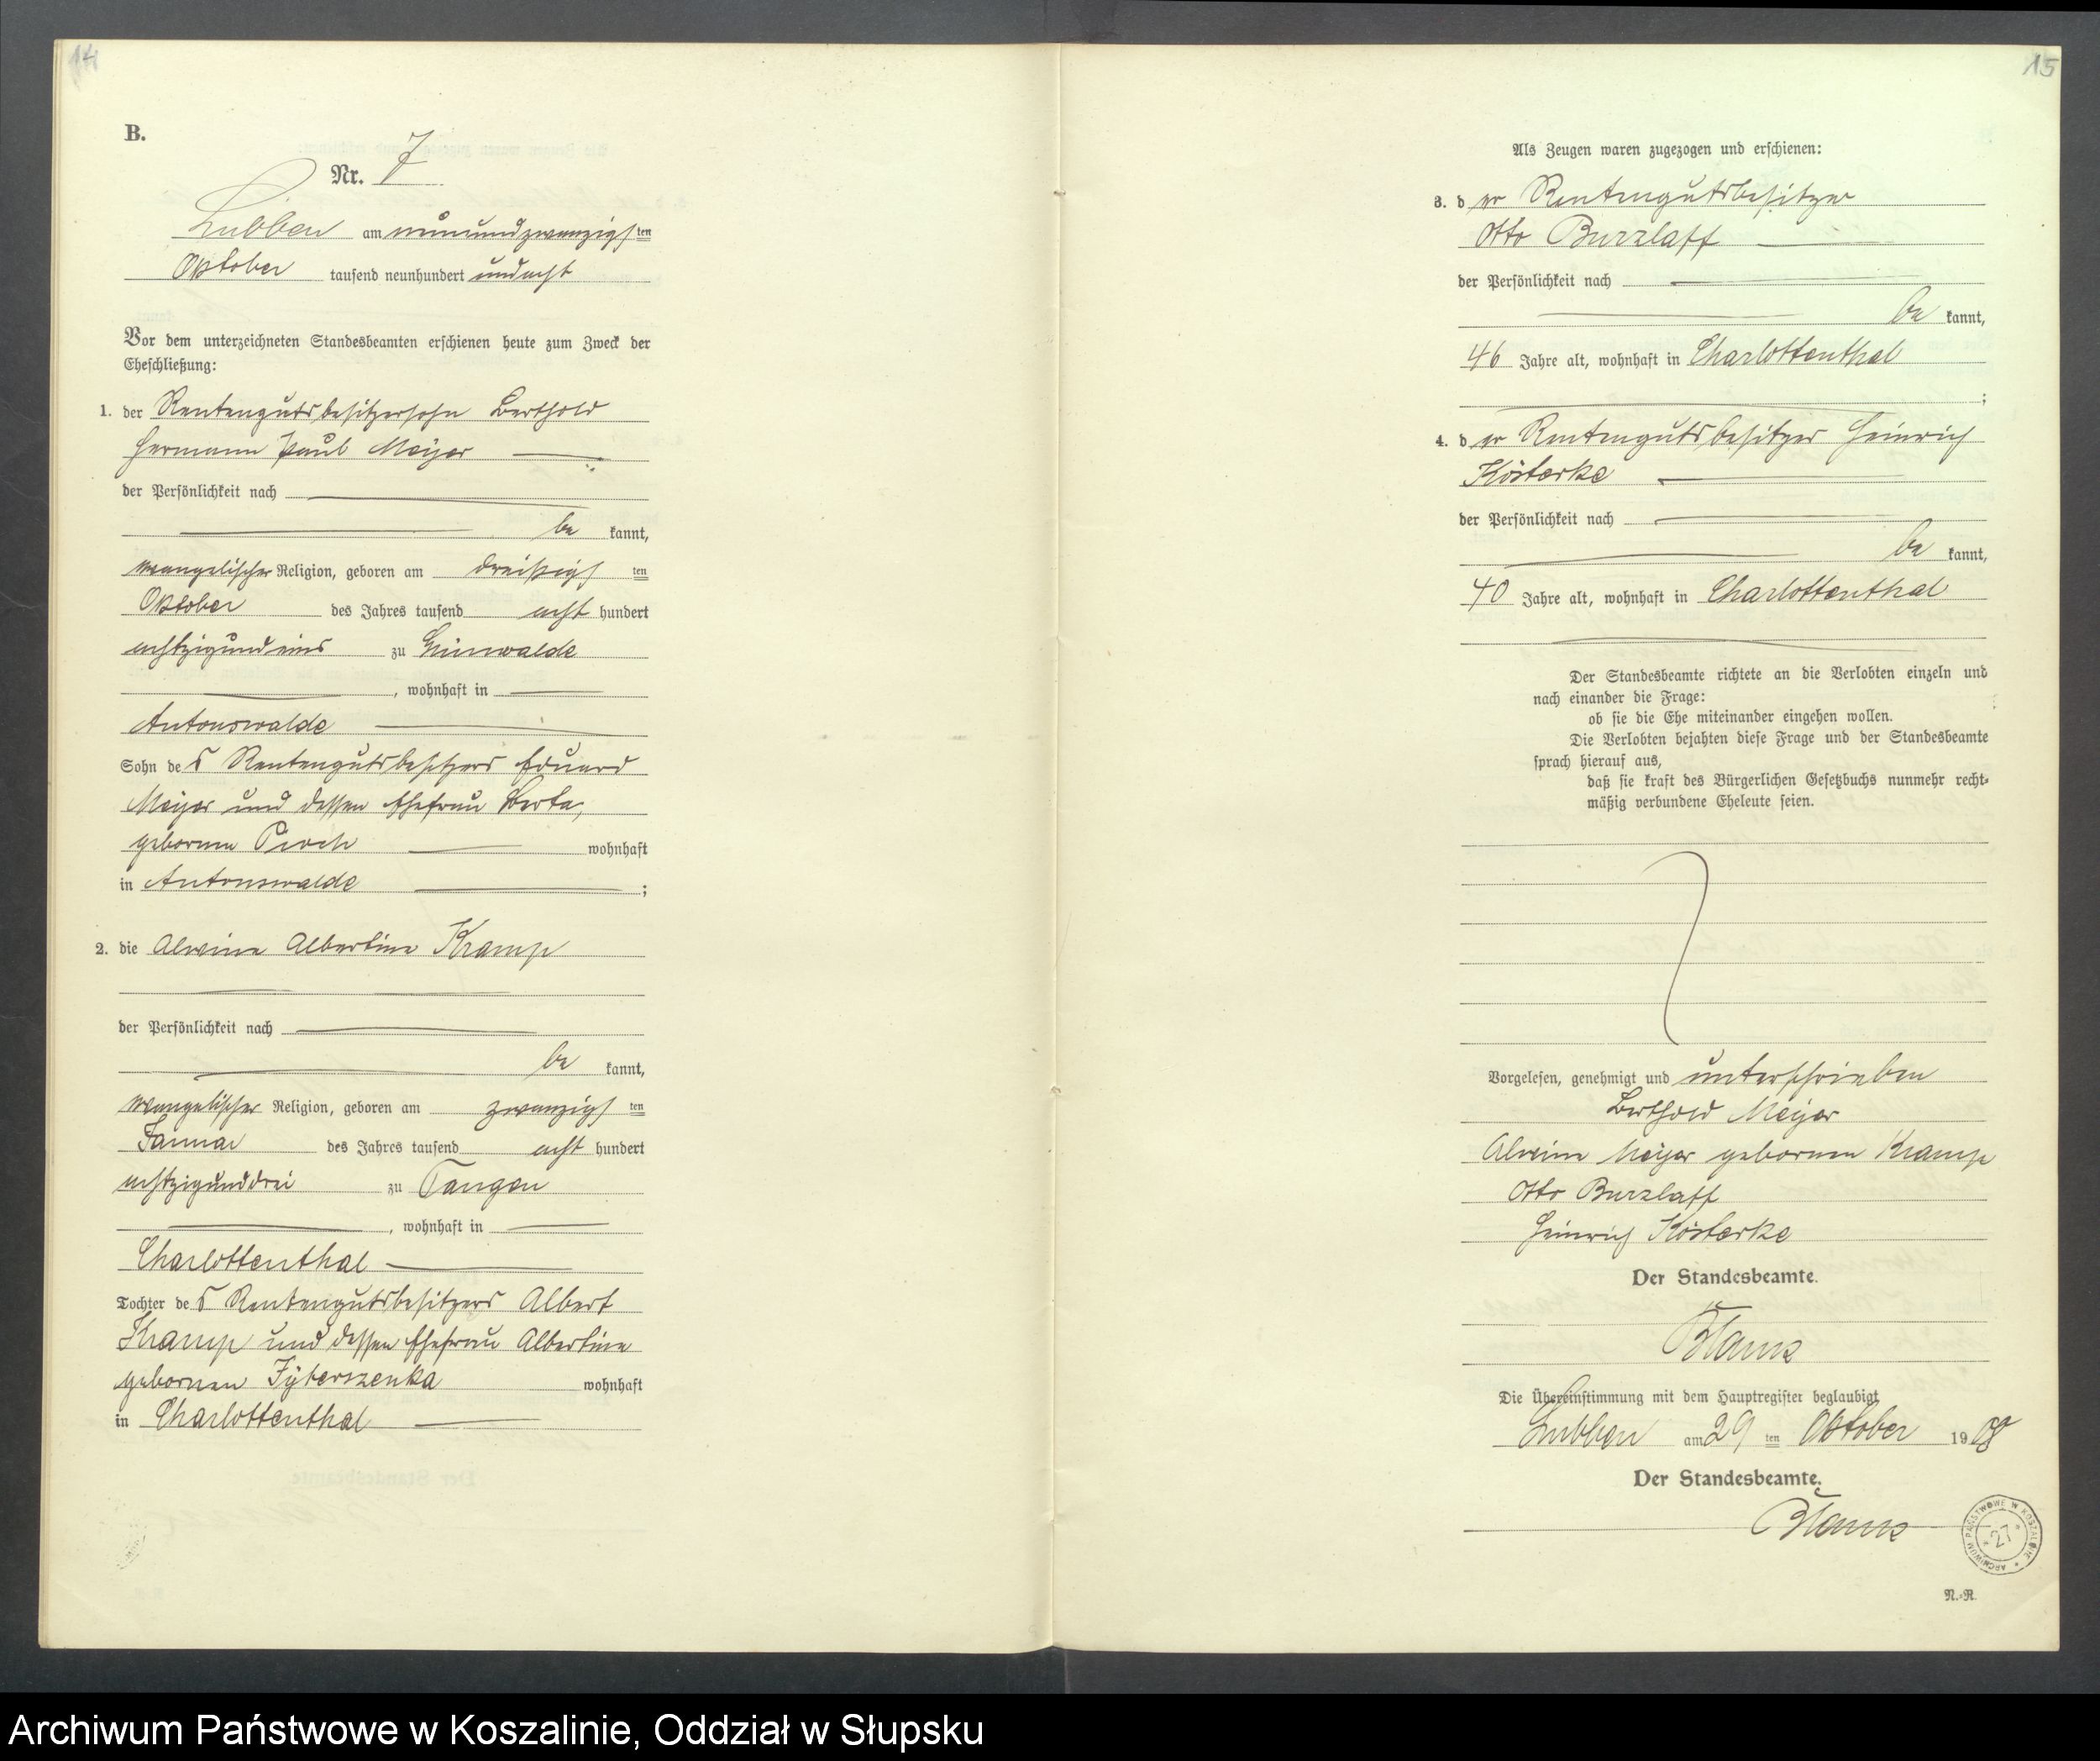 14
B.
Nr. 7
Lubben am neunundzwanzigsten
Oktober tausend neunhundert undacht
Vor dem unterzeichneten Standesbeamten erschienen heute zum Zweck der
Eheschließung:
1. der Rentengutsbesitzersohn Berthold
Hermann Paul Meyer
der Persönlichkeit nach
be kannt,
evangelischer Religion, geboren am dreißigsten
Oktober des Jahres tausend acht hundert
achtzigundeins zu Grünwalde
, wohnhaft in
Antonswalde
Sohn des Rentengutsbesitzers Eduard
Meyer und dessen Ehefrau Berta,
geborenen Piroch wohnhaft
in Antonswalde ;
2. die Alwine Albertine Kramp
der Persönlichkeit nach
be kannt,
evangelischer Religion, geboren am zwanzigsten
Januar des Jahres tausend acht hundert
achtzigunddrei zu Tangen
, wohnhaft in
Charlottenthal
Tochter des Rentengutsbesitzers Albert
Kramp und dessen Ehefrau Albertine
geborenen wohnhaft
in Charlottenthal
15
Als Zeugen waren zugezogen und erschienen:
3. der Rentengutsbesitzer
Otto Burzlaff
der Persönlichkeit nach
be kannt,
46 Jahre alt, wohnhaft in Charlottenthal
;
4. der Rentengutsbesitzer Heinrich
Kösterke
der Persönlichkeit nach
be kannt,
40 Jahre alt, wohnhaft in Charlottenthal
Der Standesbeamte richtete an die Verlobten einzeln und
nach einander die Frage:
ob sie die Ehe miteinander eingehen wollen.
Die Verlobten bejahten diese Frage und der Standesbeamte
sprach hierauf aus,
daß sie kraft des Bürgerlichen Gesetzbuchs nunmehr recht-
mäßig verbundene Eheleute seien.
Vorgelesen, genehmigt und unterschrieben
Berthold Meyer
Alwine Meyer geborenen Kramp
Otto Burzlaff
Heinrich Kösterke
Der Standesbeamte.
Die Übereinstimmung mit dem Hauptregister beglaubigt
Lubben am 29 ten Oktober 1908
Der Standesbeamte.
ARCHIWUM PAŃSTWOWE W KOSZALINIE
27
N.-R.
Archiwum Państwowe w Koszalinie, Oddział w Słupsku